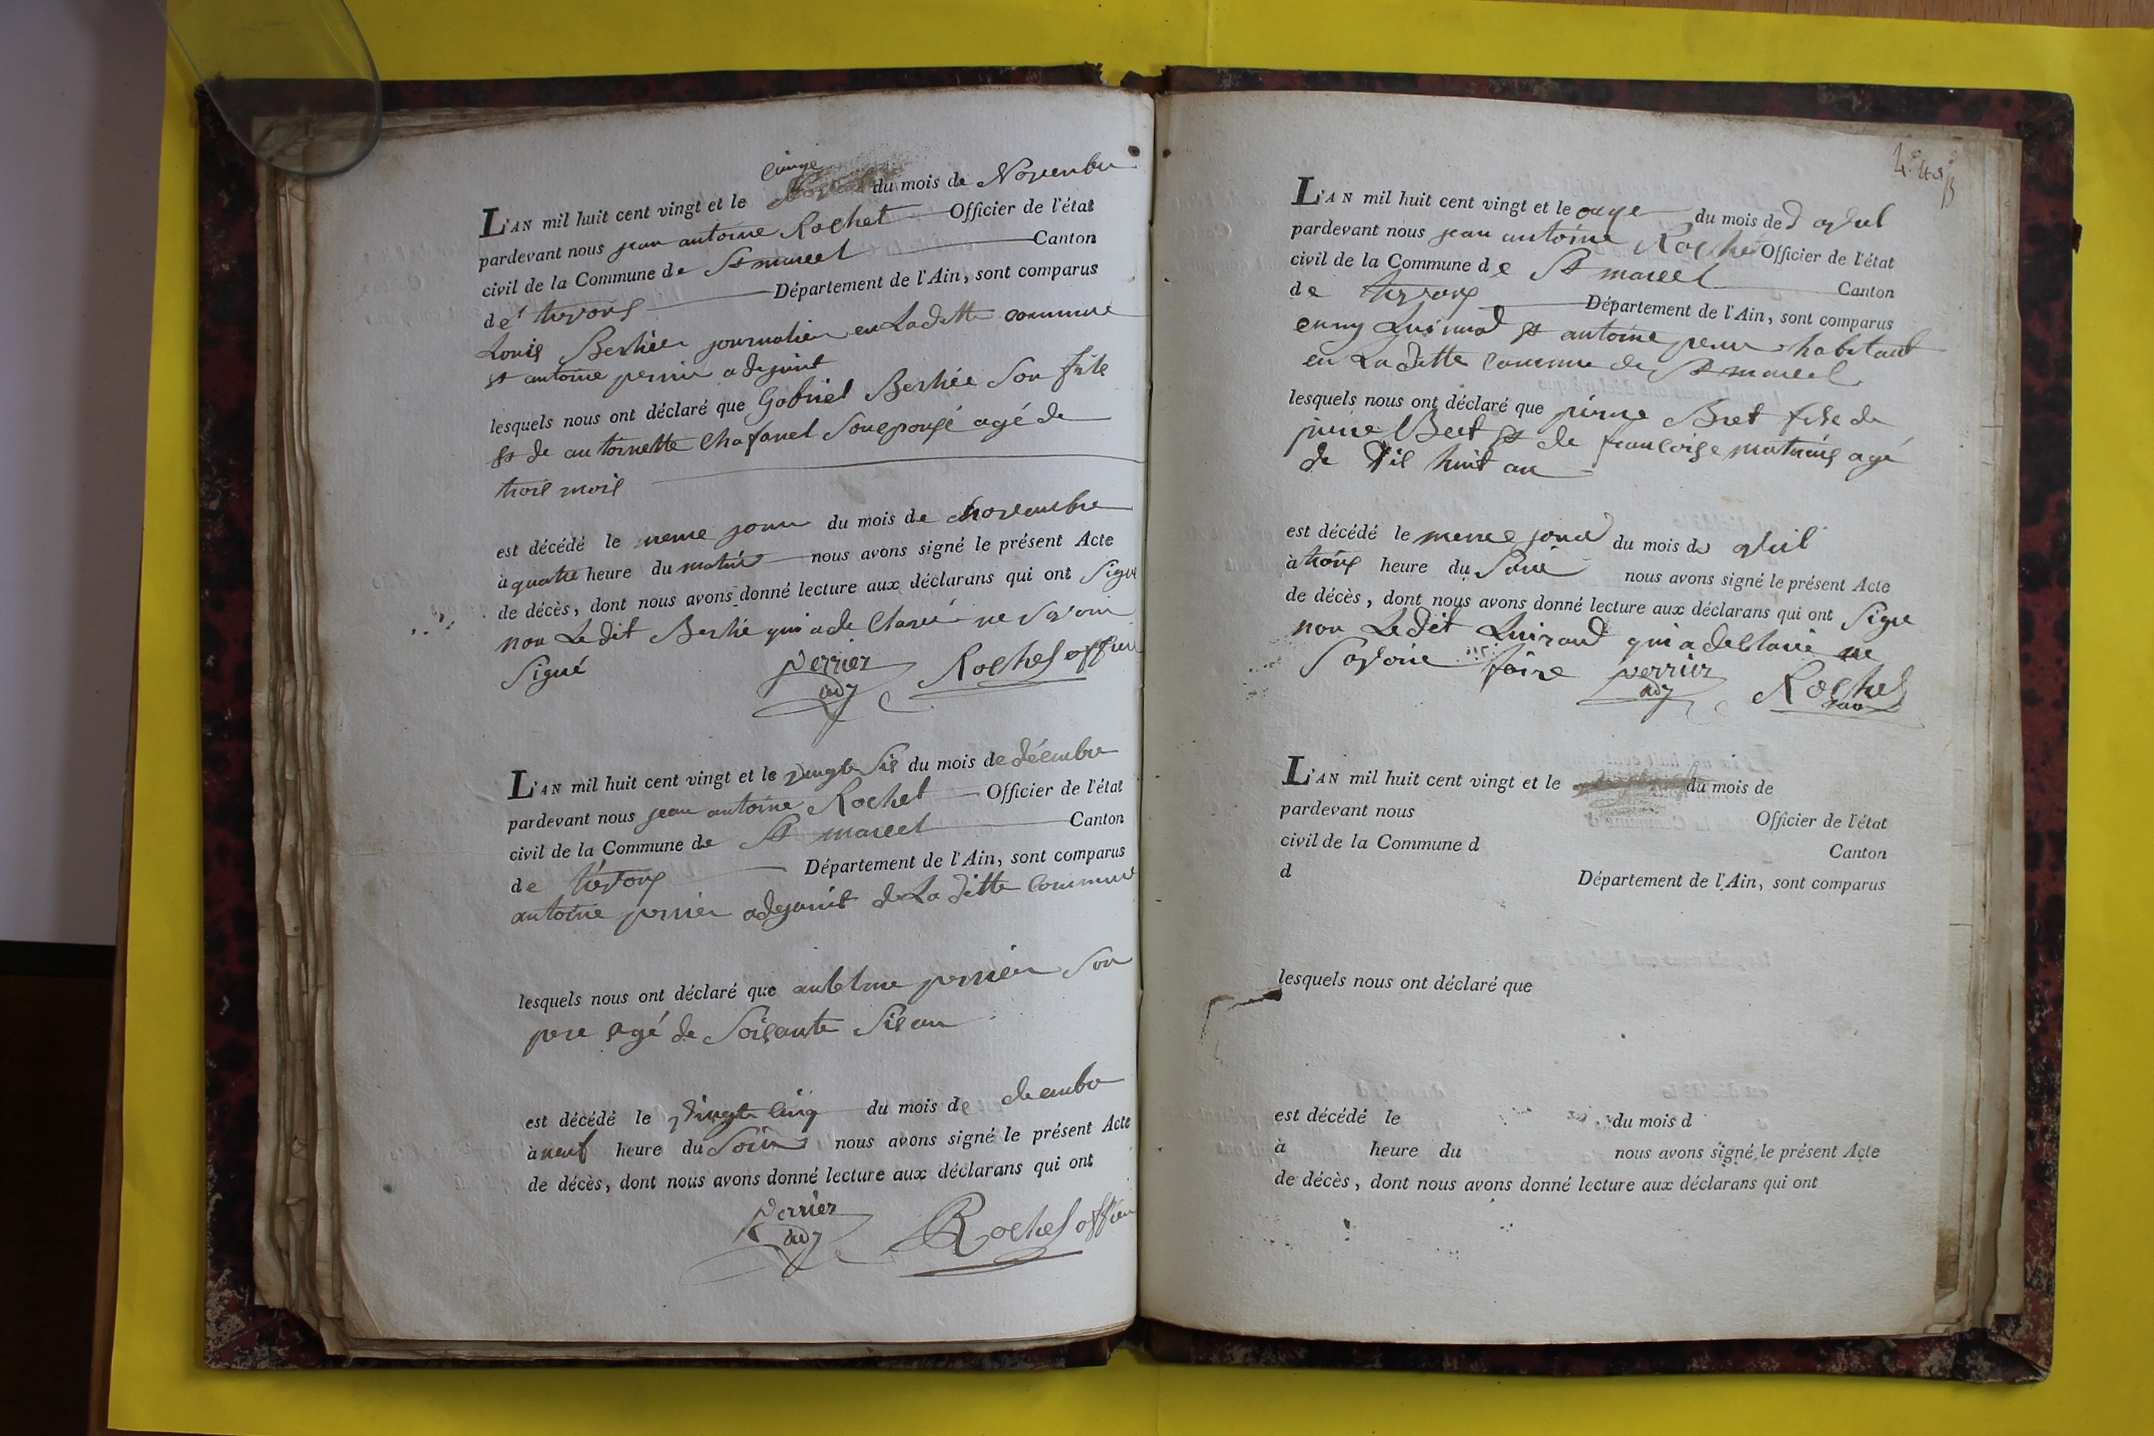 L'AN mil huit cent vingt et le du mois de Novembre
pardevant nous jean antoine Rochet Officier de l'état
civil de la Commune de St marcel Canton
de Département de l'Ain, sont comparus
Louis Berthier journalier en Laditte commune
et antoine perrier adejoint
lesquels nous ont déclaré que Gabriel Berthié Son fils
et de antoinette Chafanel Son epouse agé de
trois mois
est décédé le meme jour du mois de Novembre
à quatre heure du matin nous avons signé le présent Acte
de décès, dont nous avons donné lecture aux déclarans qui ont Signé
non Ledit Berthié qui a declaré ne Savoir
Signé perrier adj Rochet officier
L'AN mil huit cent vingt et le vingt Sis du mois de décembre
pardevant nous jean antoine Rochet Officier de l'état
civil de la Commune de St marcel Canton
de Département de l'Ain, sont comparus
antoine perrier adejoint de La ditte Commune
lesquels nous ont déclaré que antelme perrier Son
pere agé de Soisante Sis an
est décédé le vingt cinq du mois de
à neuf heure du Soir nous avons signé le présent Acte
de décès, dont nous avons donné lecture aux déclarans qui ont
perrier adj Rochet officier
L'AN mil huit cent vingt et le onze du mois de
pardevant nous jean antoine Rochet Officier de l'état
civil de la Commune de St marcel Canton
de Département de l'Ain, sont comparus
et antoine perrier habitant
en La ditte Commune de St marcel
lesquels nous ont déclaré que pierre Bret fils de
pierre Bret et de francoise agé
de dis huit an
est décédé le meme jour du mois de
à trois heure du Soir nous avons signé le présent Acte
de décès, dont nous avons donné lecture aux déclarans qui ont Signé
non Ledit qui a declaré ne
Savoir faire perrier adj Rochet
L'AN mil huit cent vingt et le du mois de
pardevant nous Officier de l'état
civil de la Commune d Canton
d Département de l'Ain, sont comparus
lesquels nous ont déclaré que
est décédé le du mois d
à heure du nous avons signé le présent Acte
de décès, dont nous avons donné lecture aux déclarans qui ont